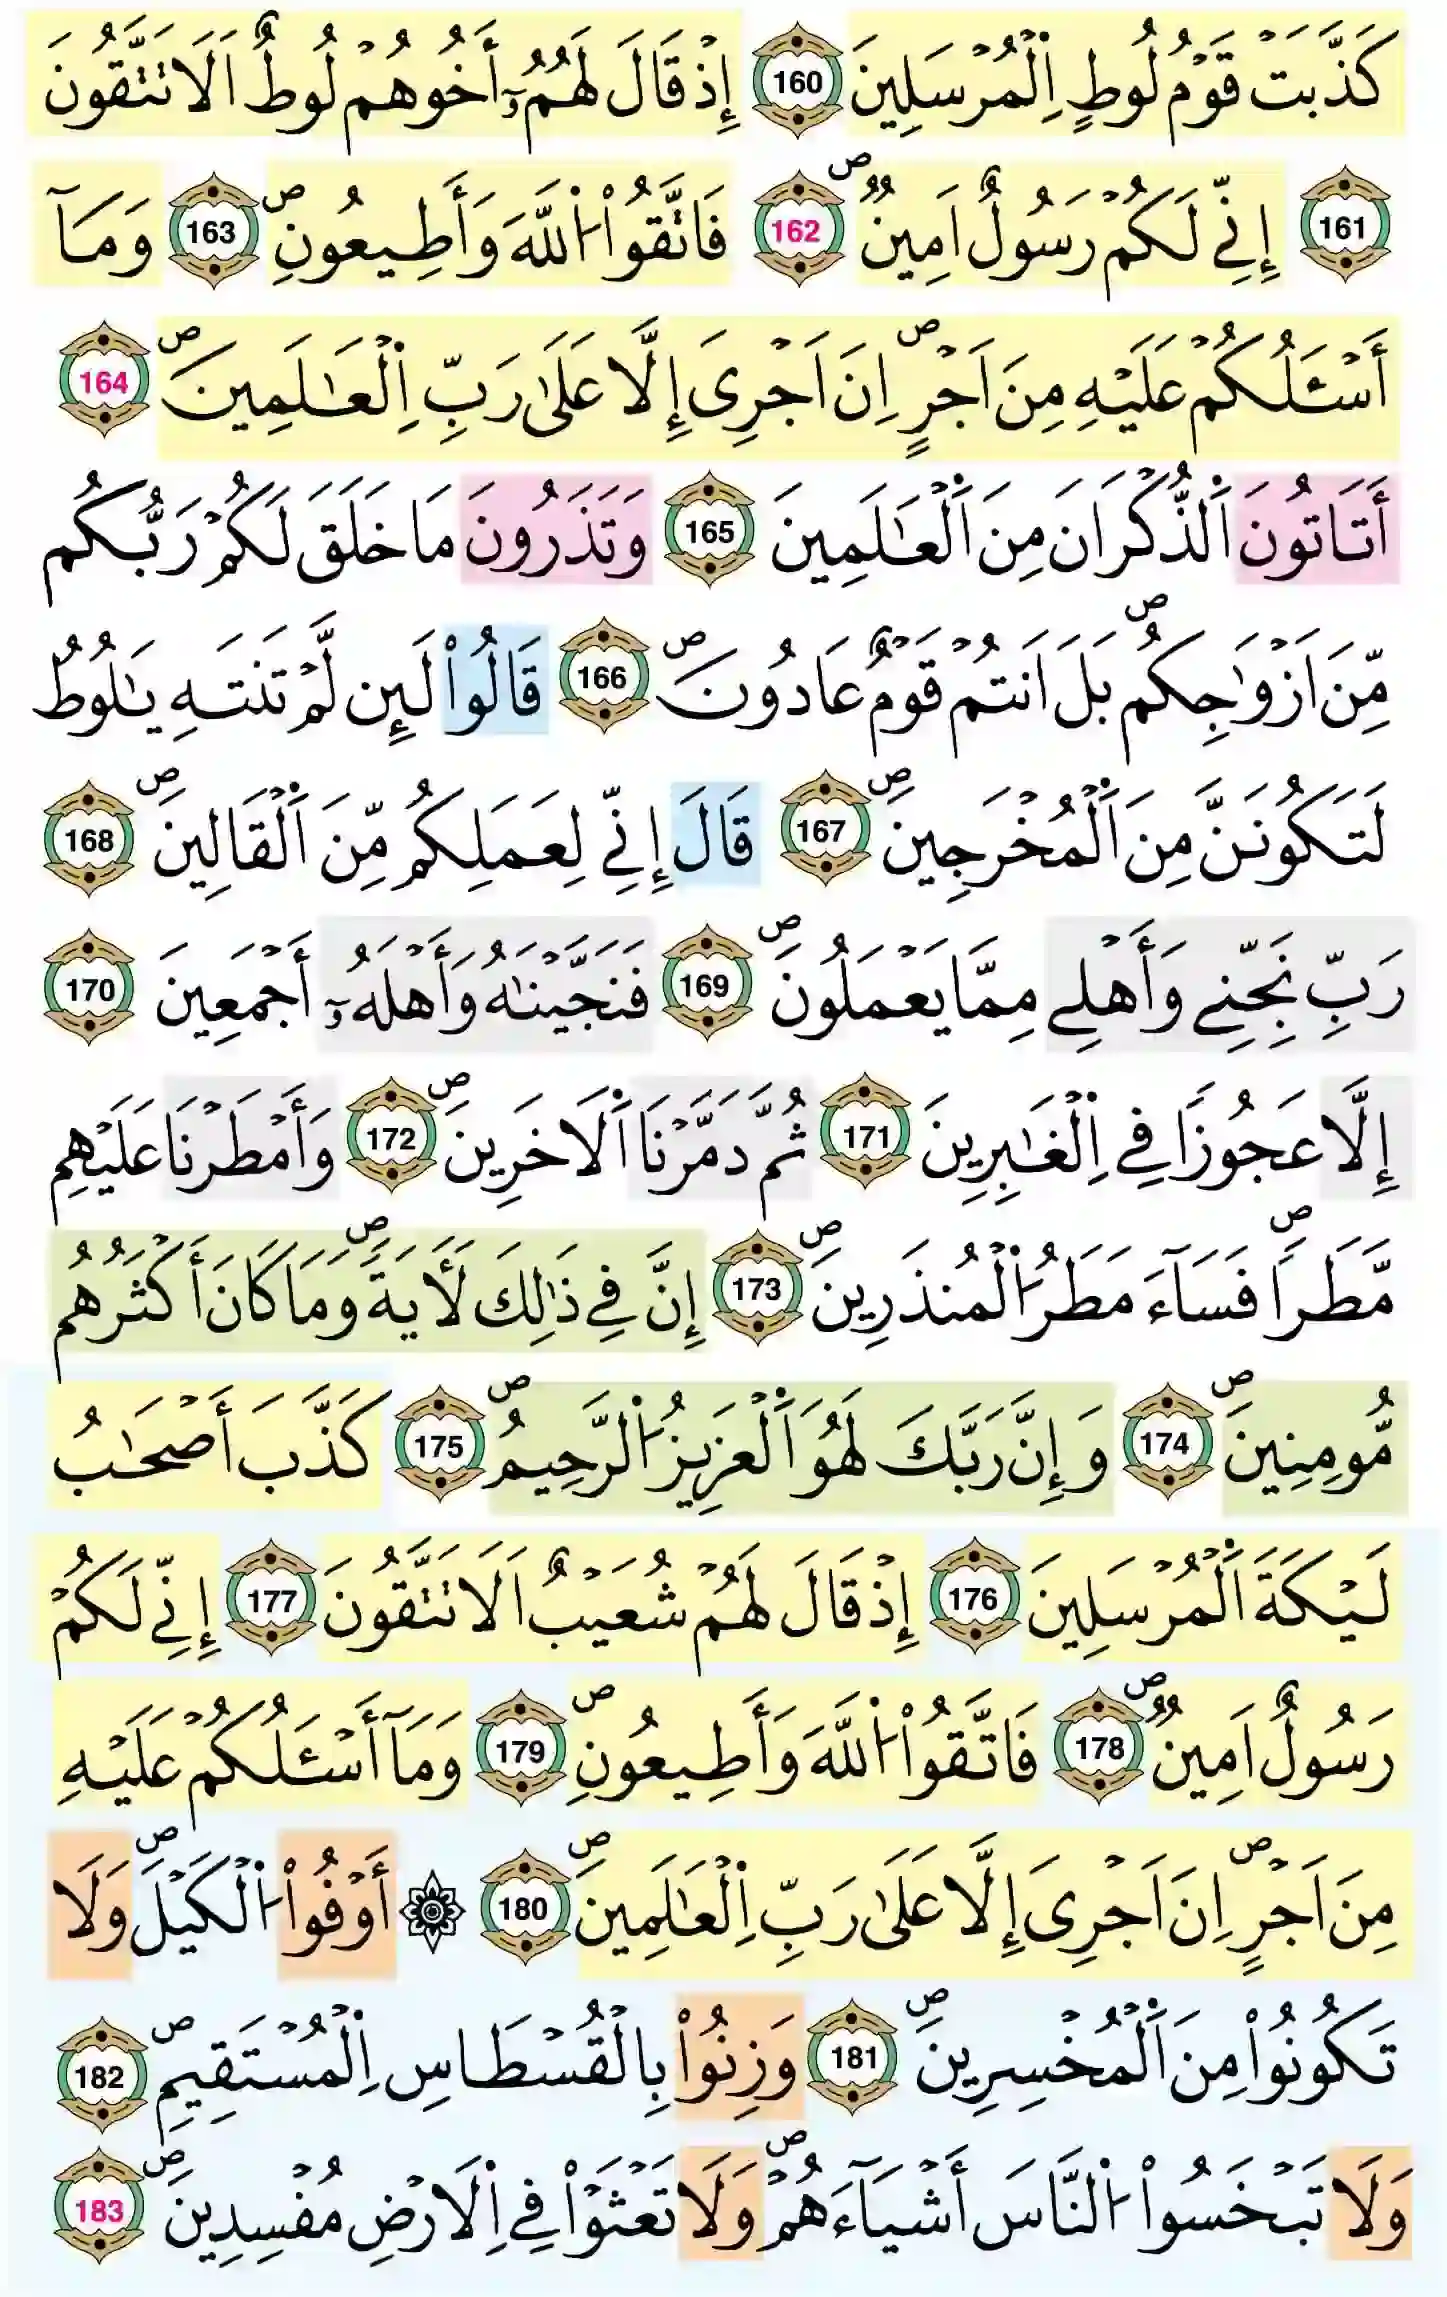 كَذَّبَتْ قَوْمُ لُوطٍ اِ۬لْمُرْسَلِينَ 160 إِذْ قَالَ لَهُمُۥٓ أَخُوهُمْ لُوطٌ اَلَا تَتَّقُونَ
161 إِنِّے لَكُمْ رَسُولٌ اَمِينٌۖ 162 فَاتَّقُواْ اُ۬للَّهَ وَأَطِيعُونِۖ 163 وَمَآ
أَسْـَٔلُكُمْ عَلَيْهِ مِنَ اَجْرٍۖ اِنَ اَجْرِىَ إِلَّا عَلَىٰ رَبِّ اِ۬لْعَٰلَمِينَۖ 164
أَتَاتُونَ اَ۬لذُّكْرَانَ مِنَ اَ۬لْعَٰلَمِينَ 165 وَتَذَرُونَ مَا خَلَقَ لَكُمْ رَبُّكُم
مِّنَ اَزْوَٰجِكُمۖ بَلَ اَنتُمْ قَوْمٌ عَادُونَۖ 166 قَالُواْ لَئِن لَّمْ تَنتَهِ يَٰلُوطُ
لَتَكُونَنَّ مِنَ اَ۬لْمُخْرَجِينَۖ 167 قَالَ إِنِّے لِعَمَلِكُم مِّنَ اَ۬لْقَالِينَۖ 168
رَبِّ نَجِّنِے وَأَهْلِے مِمَّا يَعْمَلُونَۖ 169 فَنَجَّيْنَٰهُ وَأَهْلَهُۥٓ أَجْمَعِينَ 170
إِلَّا عَجُوزًا فِے اِ۬لْغَٰبِرِينَ 171 ثُمَّ دَمَّرْنَا اَ۬لَاخَرِينَۖ 172 وَأَمْطَرْنَا عَلَيْهِم
مَّطَرًاۖ فَسَآءَ مَطَرُ اُ۬لْمُنذَرِينَۖ 173 إِنَّ فِے ذَٰلِكَ لَأٓيَةًۖ وَمَا كَانَ أَكْثَرُهُم
مُّومِنِينَۖ 174 وَإِنَّ رَبَّكَ لَهُوَ اَ۬لْعَزِيزُ اُ۬لرَّحِيمُۖ 175 كَذَّبَ أَصْحَٰبُ
لَيْكَةَ اَ۬لْمُرْسَلِينَ 176 إِذْ قَالَ لَهُمْ شُعَيْبٌ اَلَا تَتَّقُونَ 177 إِنِّے لَكُمْ
رَسُولٌ اَمِينٌۖ 178 فَاتَّقُواْ اُ۬للَّهَ وَأَطِيعُونِۖ 179 وَمَآ أَسْـَٔلُكُمْ عَلَيْهِ
مِنَ اَجْرٍۖ اِنَ اَجْرِىَ إِلَّا عَلَىٰ رَبِّ اِ۬لْعَٰلَمِينَۖ 180 ۞ أَوْفُواْ اُ۬لْكَيْلَۖ وَلَا
تَكُونُواْ مِنَ اَ۬لْمُخْسِرِينَۖ 181 وَزِنُواْ بِالْقُسْطَاسِ اِ۬لْمُسْتَقِيمِۖ 182
وَلَا تَبْخَسُواْ اُ۬لنَّاسَ أَشْيَآءَهُمْۖ وَلَا تَعْثَوْاْ فِے اِ۬لَارْضِ مُفْسِدِينَۖ 183